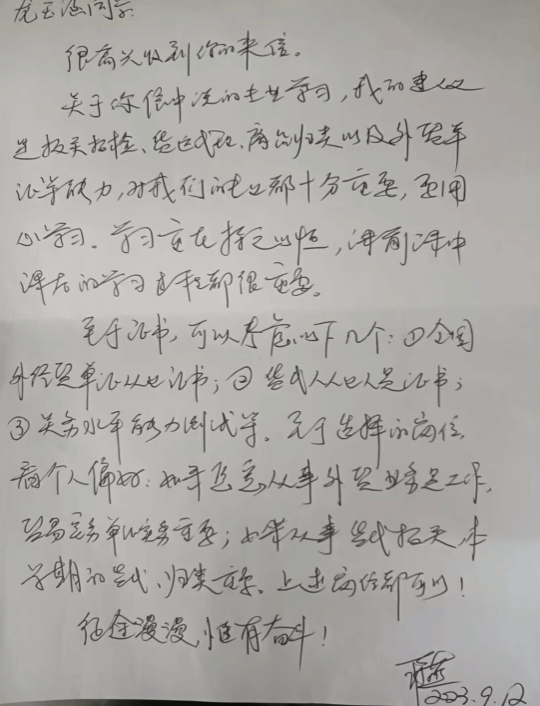 龙玉涵同学:
很高兴收到你的来信。
关于你信中说的专业学习,我的建议
是报关报检、货运代理、商品归类以及外贸单
证等能力,对我们的专业都十分重要,要用
心学习。学习重在持之以恒,课前课中
课后的学习过程都很重要。
至于证书,可以考虑以下几个:①全国
外经贸单证从业证书;②货代从业人员证书;
③关务水平能力测试等。关于选择的岗位,
看个人偏好:如果愿意从事外贸业务员工作,
贸易实务单证实务重要;如果从事货代报关,本
学期的货代、归类重要。上述岗位都可以!
征途漫漫,惟有奋斗!
2023.9.12